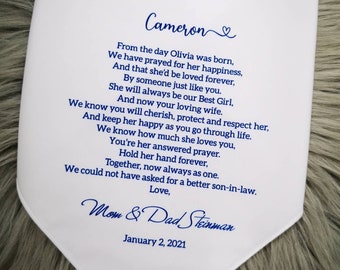 Cameron
From the day Olivia was born,
We have prayed for her happiness,
And that she'd be loved forever,
By someone just like you.
She will always be our Best Girl,
And now your loving wife.
We know you will cherish, protect and respect her,
And keep her happy as you go through life.
We know how much she loves you,
You're her answered prayer.
Hold her hand forever,
Together, now always as one.
We could not have asked for a better son-in-law.
Love,
Mom & Dad Steinman
January 2, 2021